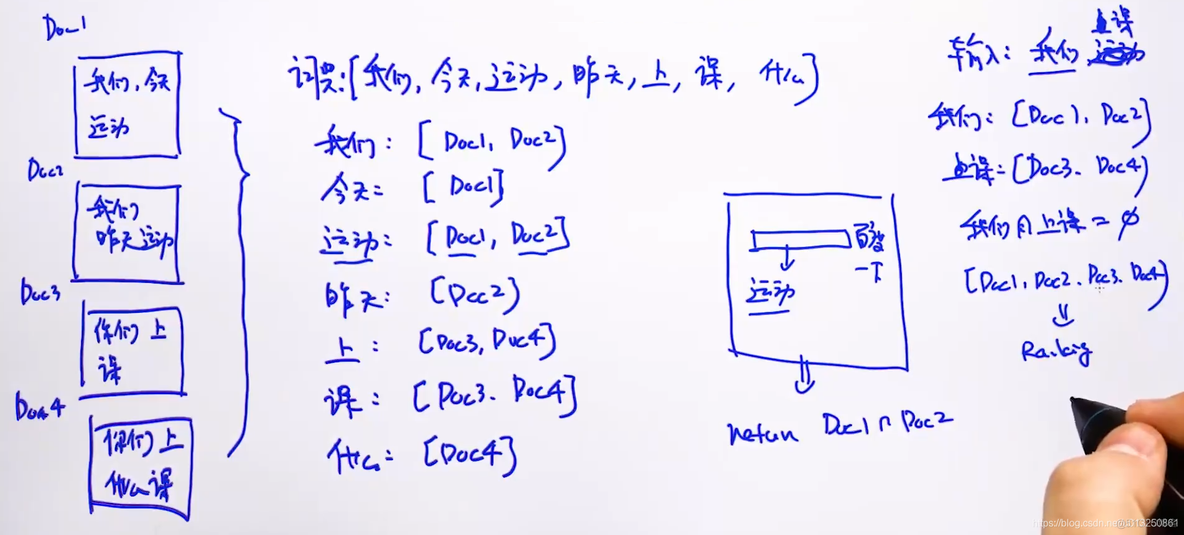 Doc1
我们,今天
运动
Doc2
我们
昨天运动
Doc3
你们 上
课
Doc4
你们上
什么课
词典:[我们, 今天, 运动, 昨天, 上, 课, 什么]
我们: [Doc1, Doc2]
今天: [Doc1]
运动: [Doc1, Doc2]
昨天: [Doc2]
上: [Doc3, Doc4]
课: [Doc3、Doc4]
什么: [Doc4]
百度
一下
运动
return Doc1∩Doc2
上课
输入: 我们 运动
我们: [Doc1, Doc2]
上课=[Doc3、Doc4]
我们∩上课 = ∅
[Doc1, Doc2、Doc3、Doc4]
Ranking